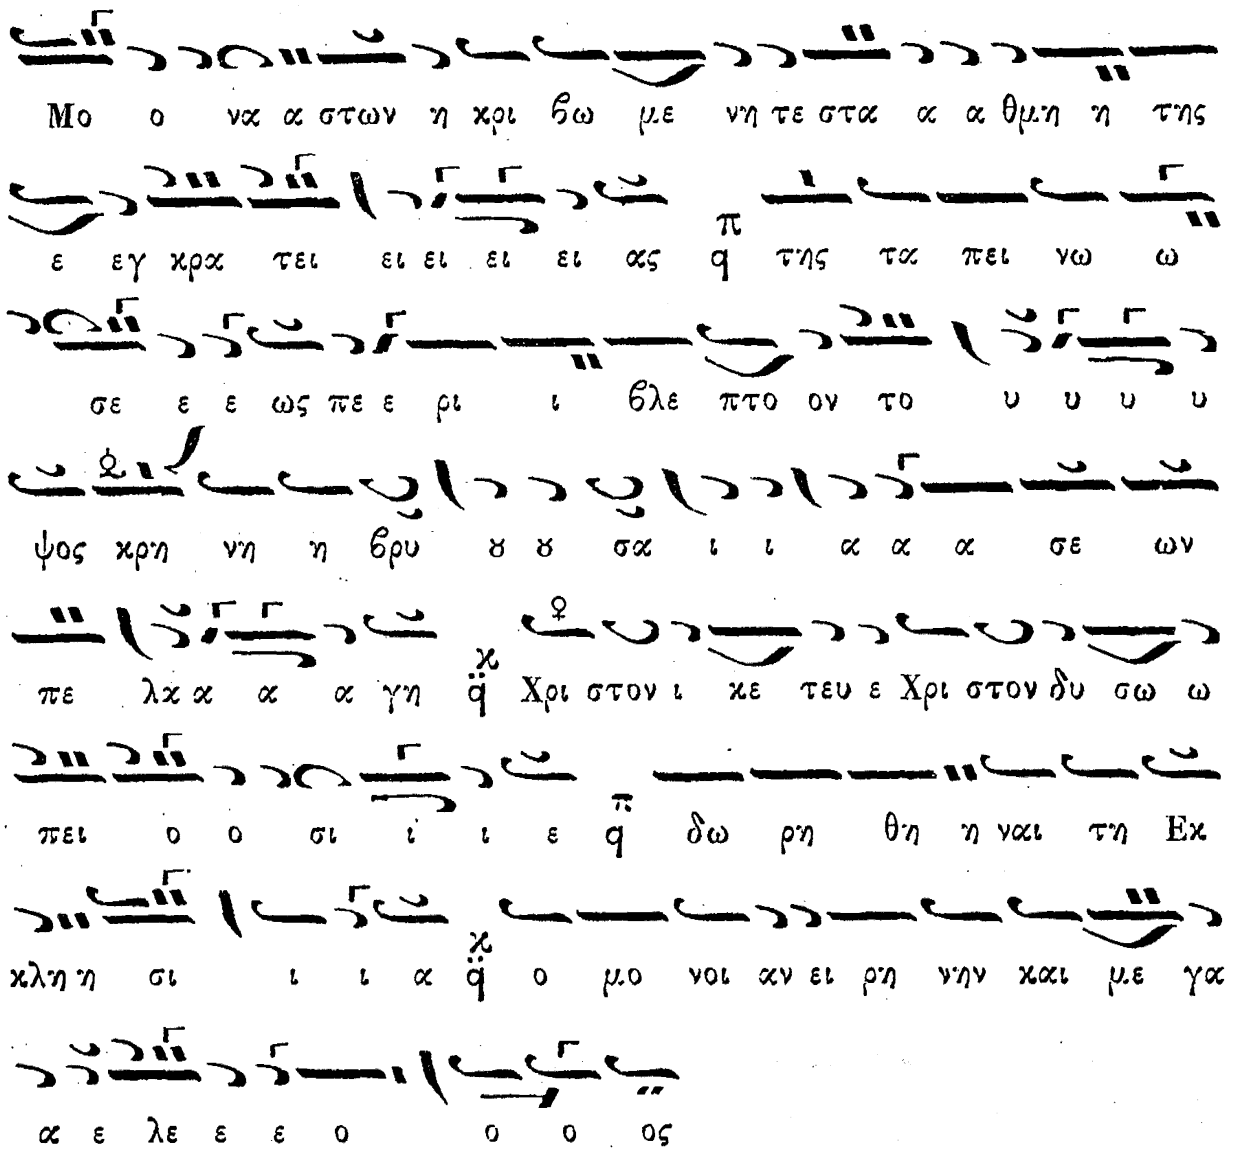 Μο ο να α στων η κρι βω με νη τε στα α α θμη η της
ε εγ κρα τει ει ει ει ει ας π q της τα πει νω ω
σε ε ε ως πε ε ρι ι βλε πτο ον το υ υ υ υ
ψος κρη νη η βρυ ȣ ȣ σα ι ι α α α σε ων
πε λα α α α γη κ q̈ Χρι στον ι κε τευ ε Χρι στον δυ σω ω
πει ο ο σι ι ι ε π q δω ρη θη η ναι τη Εκ
κλη η σι ι ι α κ q̈ ο μο νοι αν ει ρη νην και με γα
α ε λε ε ε ο ο ο ος